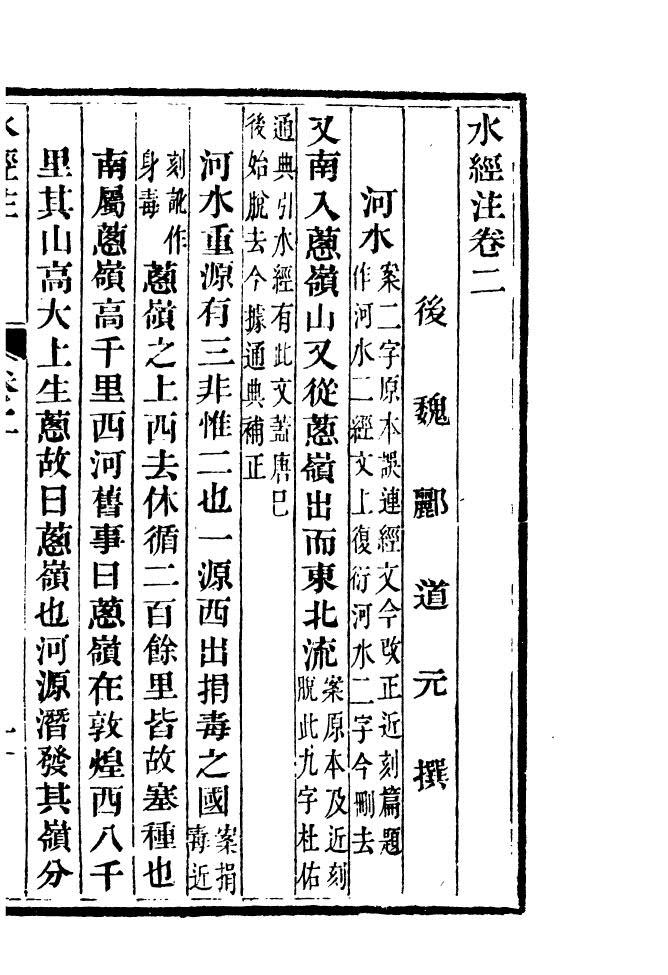 水經注卷二
後魏酈道元撰
河水案二字原本誤連經文今改正近刻篇題
作河水二經文上復衍河水二字今刪去
又南入蔥嶺山又從蔥嶺出而東北流案原本及近刻
脫此九字杜佑
通典引水經有此文蓋唐已
後始脫去今據通典補正
河水重源有三非惟二也一源西出捐毒之國案捐
毒近
刻訛作
身毒蔥嶺之上西去休循二百餘里皆故塞種也
南屬蔥嶺高千里西河舊事曰蔥嶺在敦煌西八千
里其山高大上生蔥故曰蔥嶺也河源潛發其嶺分
水經注